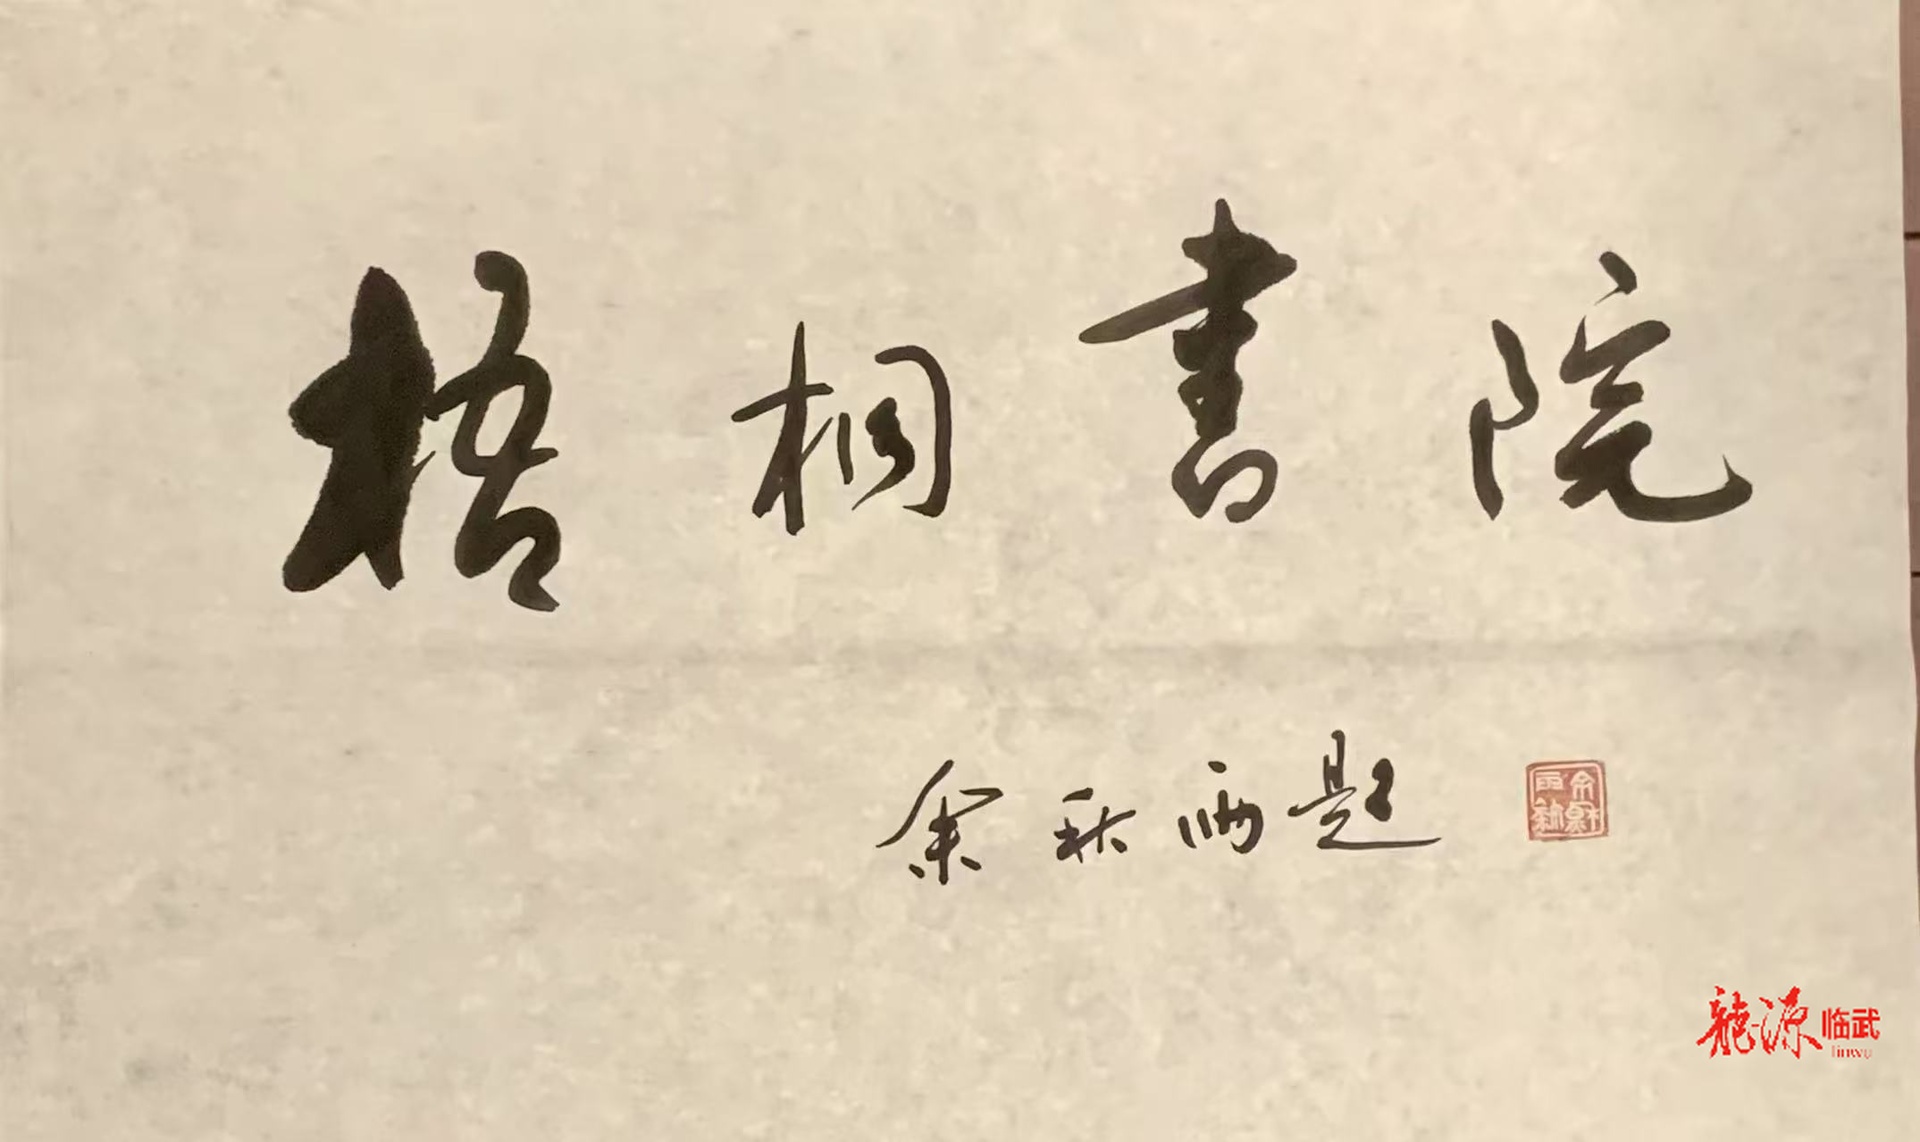 梧桐書院
余秋雨題
龍源临武
linwu